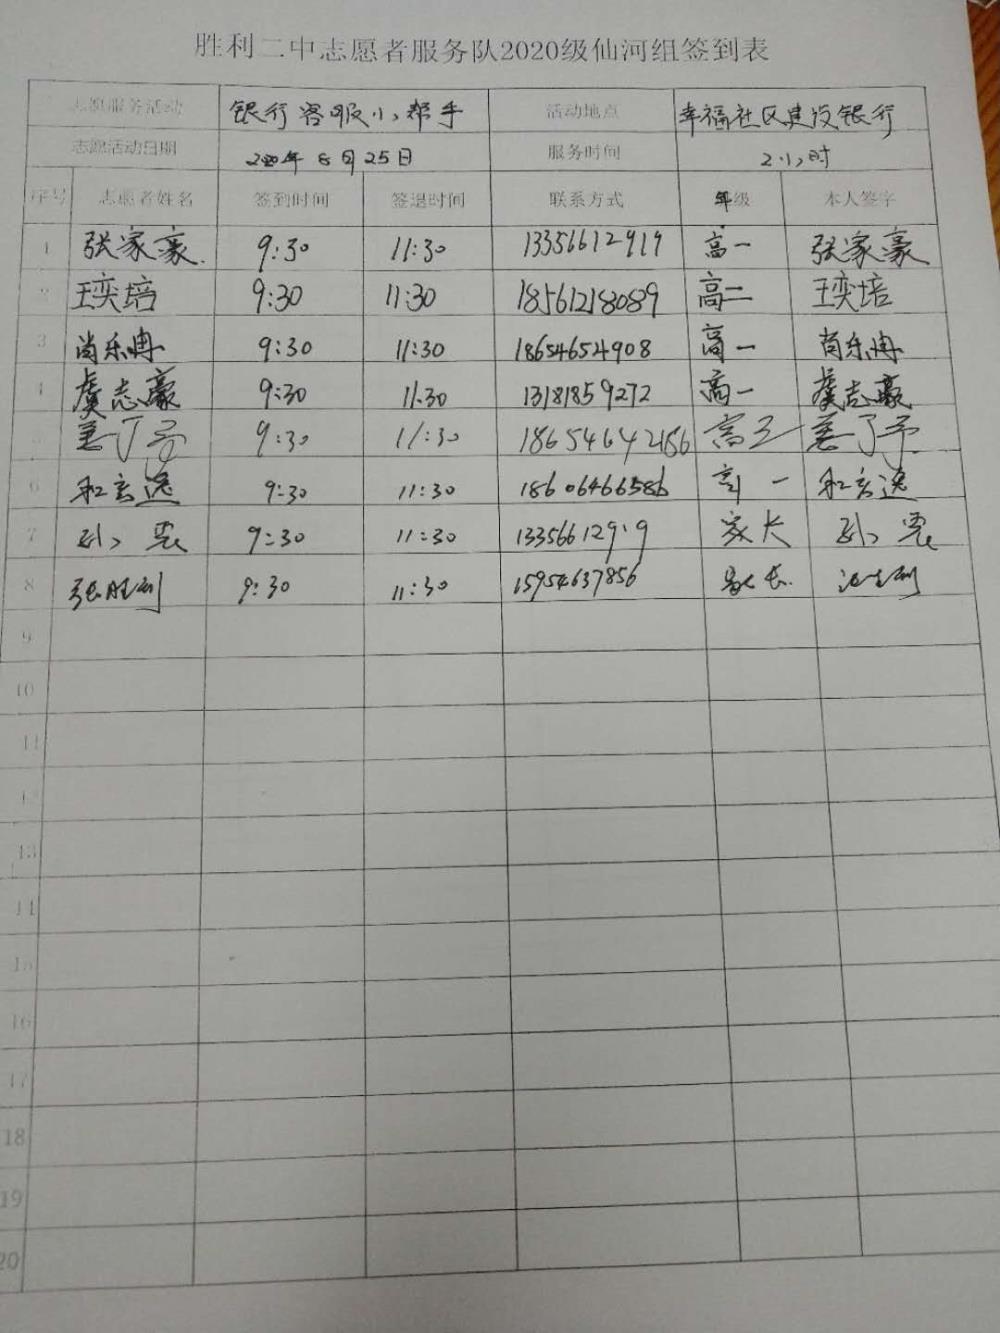 胜利二中志愿者服务队2020级仙河组签到表
志愿服务活动 银行客服小帮手 活动地点 幸福社区建设银行
志愿活动日期 2020年8月25日 服务时间 2小时
序号 志愿者姓名 签到时间 签退时间 联系方式 年级 本人签字
1 张家豪 9:30 11:30 13356612919 高一 张家豪
2 王奕培 9:30 11:30 18561218089 高二 王奕培
3 尚乐冉 9:30 11:30 18654654908 高一 尚乐冉
4 虞志豪 9:30 11:30 13181859272 高一 虞志豪
5 姜了予 9:30 11:30 18654642156 高三 姜了予
6 和玄逸 9:30 11:30 18606466586 高一 和玄逸
7 9:30 11:30 13356612919 家长
8 张胜利 9:30 11:30 15954637856 家长
9
10
11
12
13
14
15
16
17
18
19
20